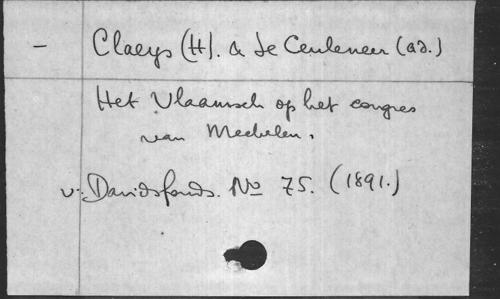 - Claeys (H). & de Ceuleneer (ad.)
Het Vlaamsch op het congres
van Mechelen.
v. Davidsfonds. No 75. (1891.)